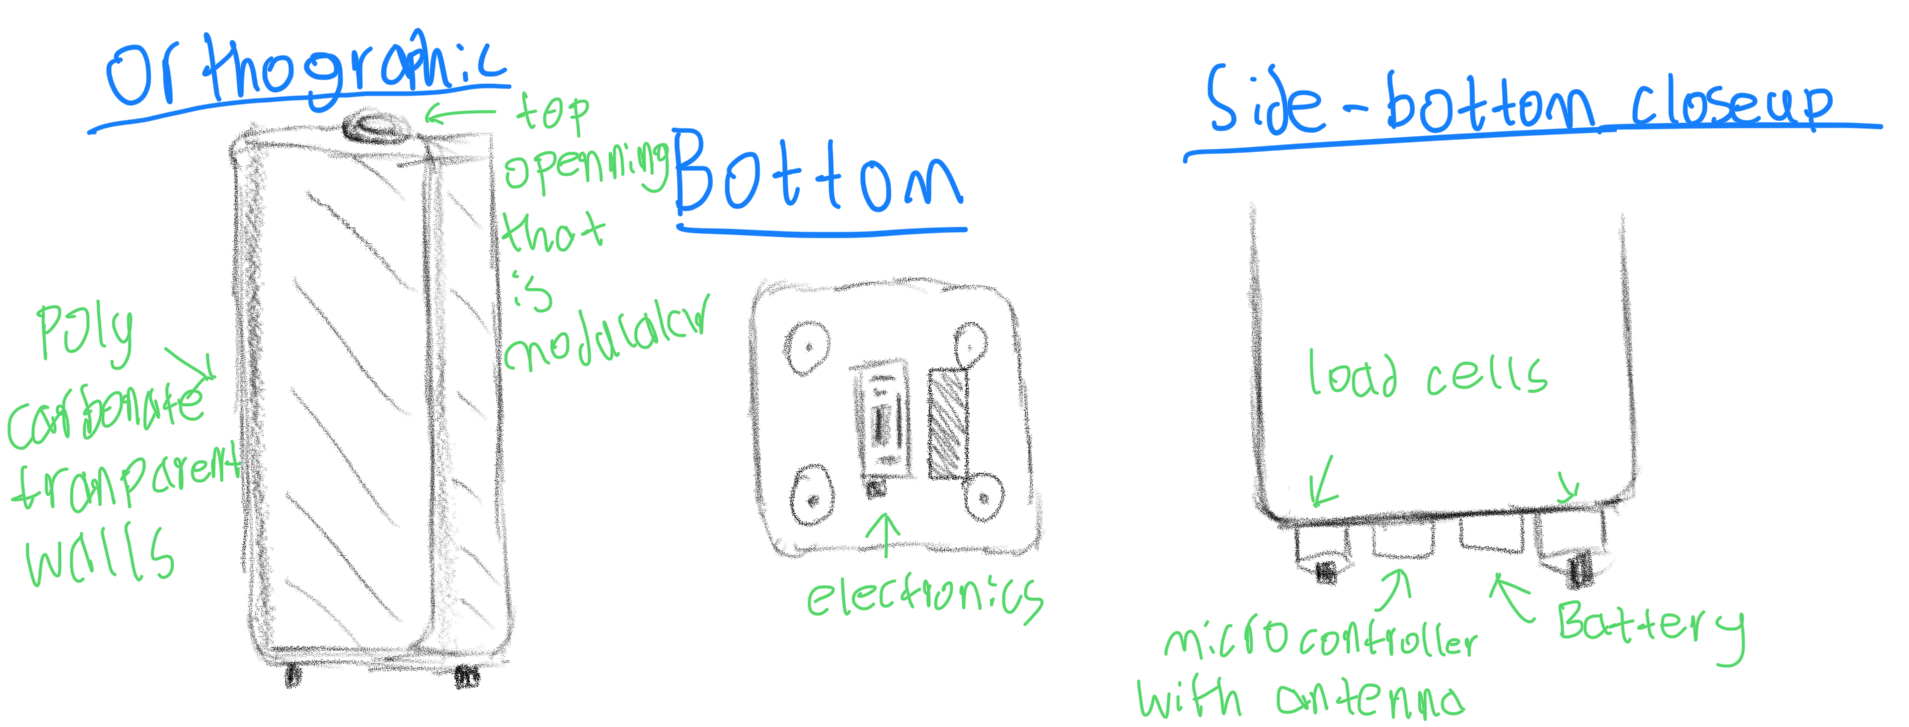 Orthographic
top
openning
that
is
modulalar
Poly
carbonate
tranparent
walls
Bottom
electronics
Side-bottom closeup
load cells
microcontroller
with antenna
Battery